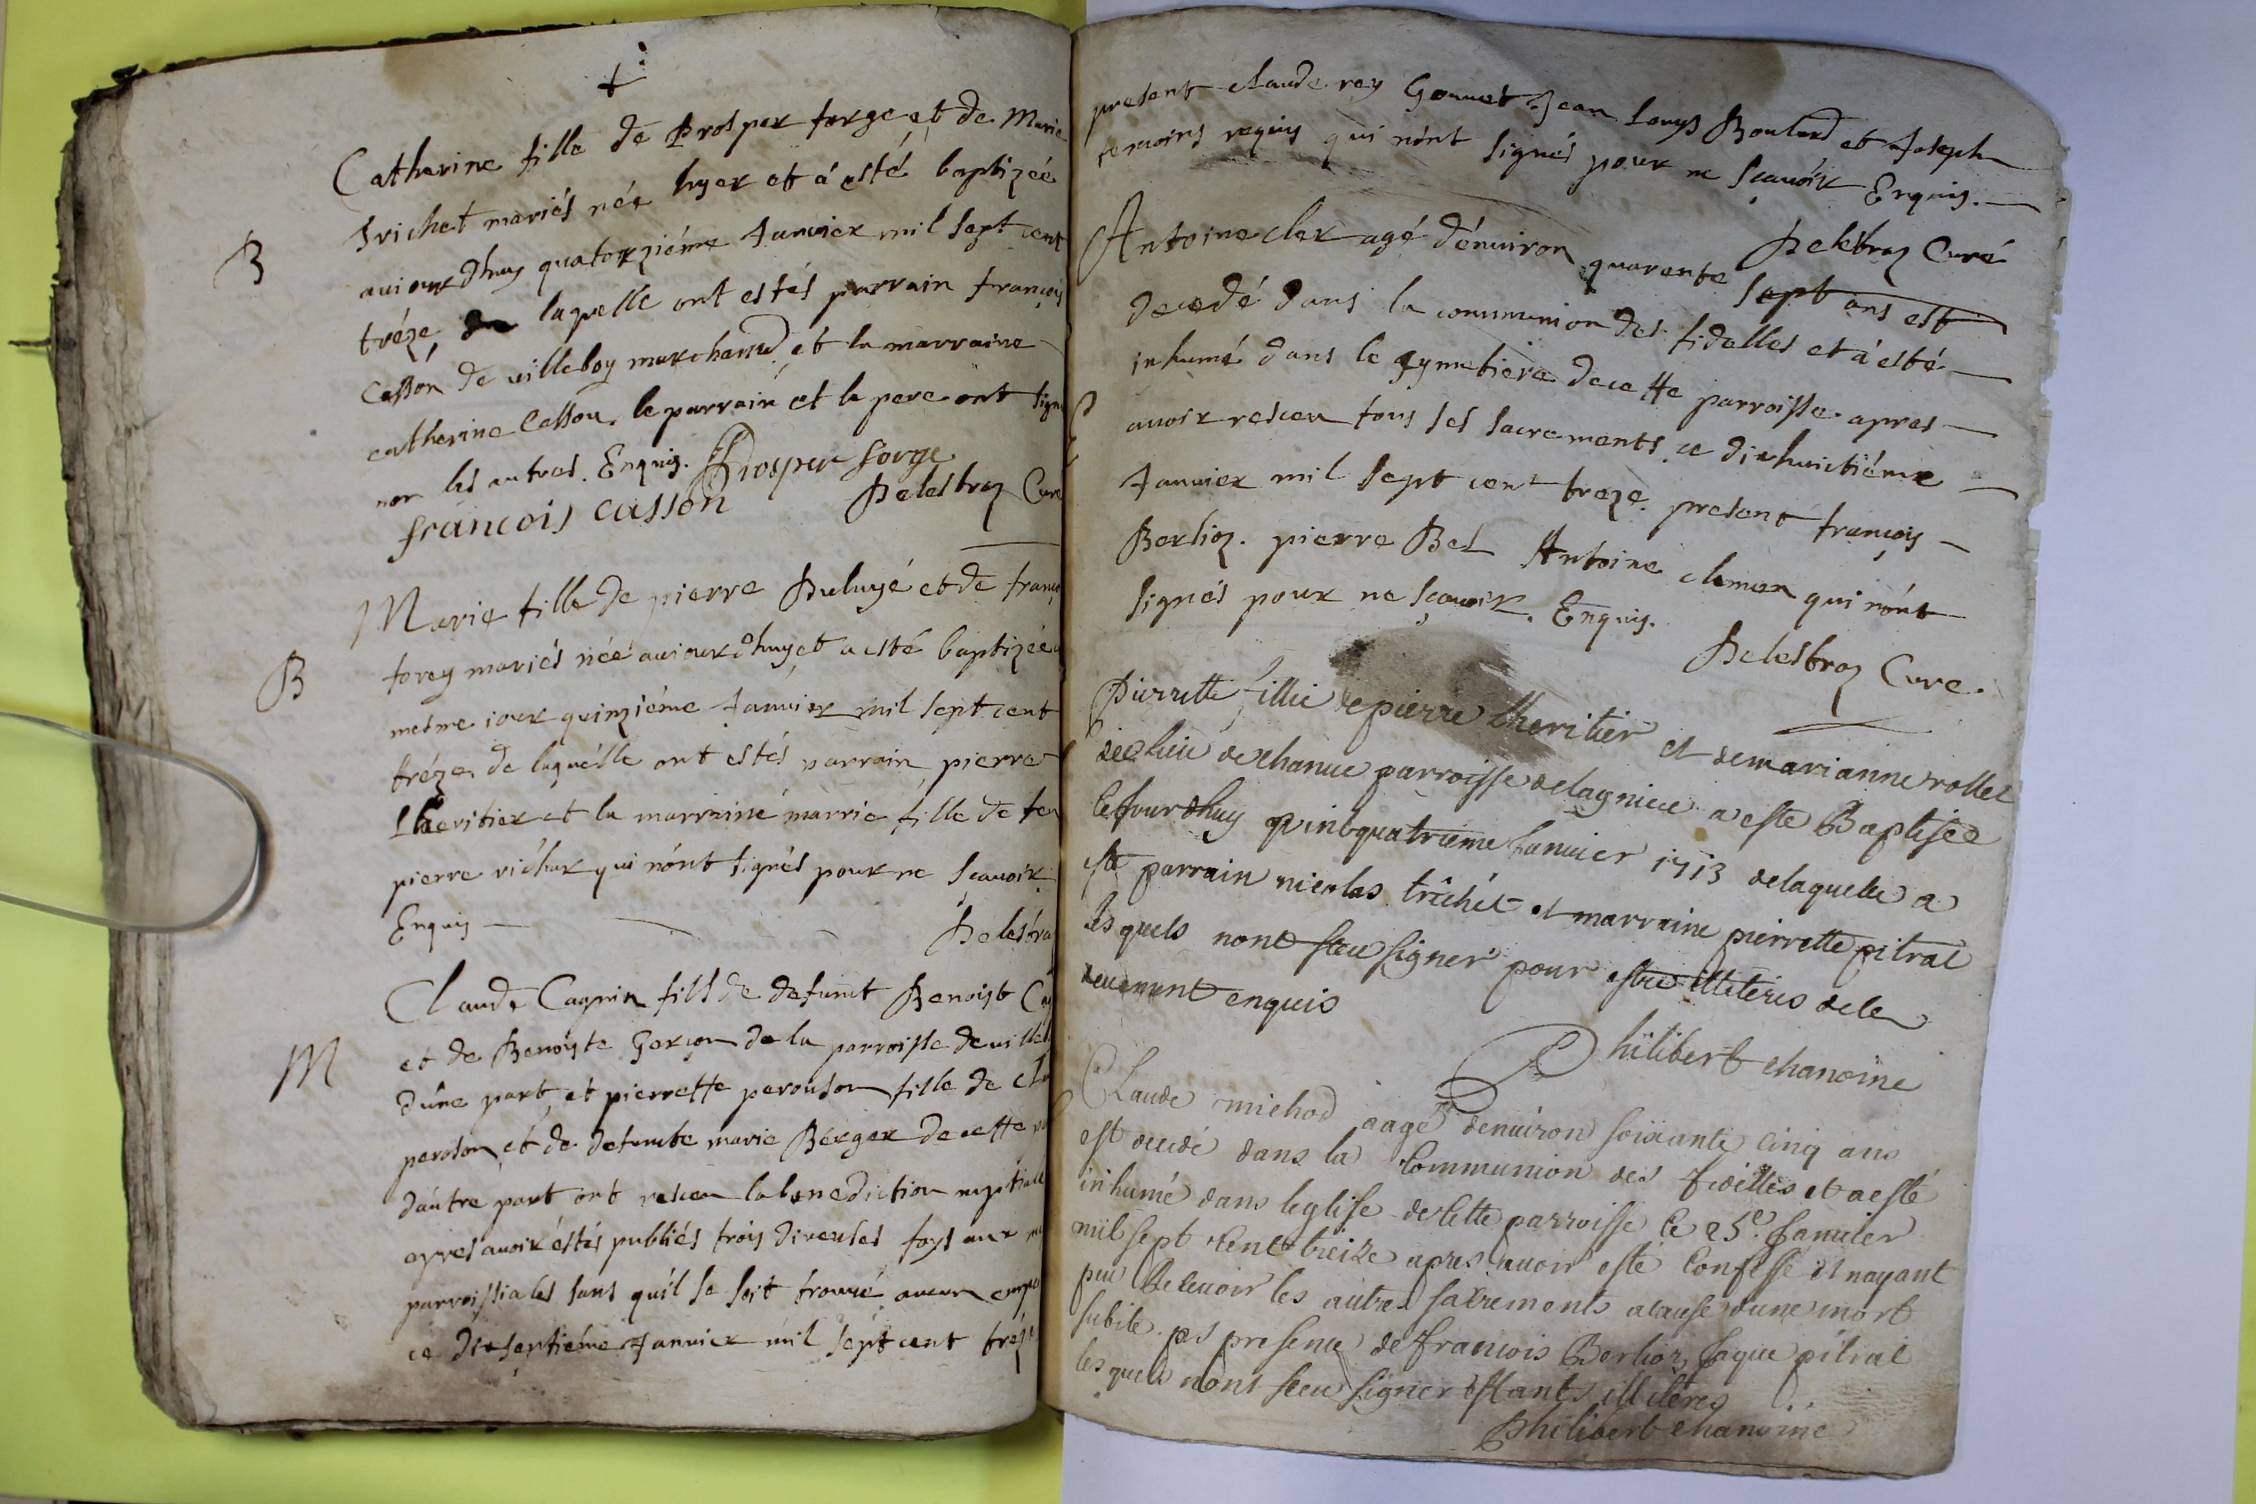 Catherine fille de Prosper forge et de Marie
trichet mariés née hyer et á esté baptizée
auiourdhuy quatorziéme Januier mil sept cent
tréze, de laquelle ont estés parrain françois
Casson de uilleboy marchand, et la marraine
catherine Casson. le parrain et le pere ont signé
non les autres. Enquis. Prosper forge
françois casson Delestraz Curé
B
Marie fille de pierre Duluyé et de franç
forey mariés née auiourdhuy et a esté baptizée
mesme iour quinziéme Januier mil sept cent
tréze, de laquélle ont estés parrain pierre
Lheritier et la marraine marrie fille de feu
pierre uichar qui nónt signés pour ne scauoir
Enquis Delestra
B
Claude Cagnin fils de defunct Benoist Cag
et de Benoiste Gerçon de la parroisse de uilleb
dúne part, et pierrette perouson fille de cla
peroson, et de defunte marie Berger de cette
dáutre part ont receu la benediction nuptiale
apres auoir éstés publiés trois diverses foys aux
parroissiales sans quíl se soit trouué aucun empe
ce dixseptiéme Januier mil sépt cent tréze
M
present claude rey Gonnet Jean Louys Boulard et Joseph
temoins requis qui nónt signés pour ne scauóir Enquis.
Delestraz Curé
Antoine cler agé dénuiron quarente sept ans est
decedé dans la communion des fidelles et á esté
inhumé dans le cymetiere de cette parroisse apres
auoir receu tous ses sacrements ce dixhuictiéme
Januier mil sept cent treze. present françois
Berlioz. pierre Bel Antoine cleman qui nónt
signés pour ne scauoir. Enquis.
Delestraz Cure.
Pierrette fillie de pierre Lheritier et de marianne rollet
de chanue parroisse de lagnieu a este Baptisée
cejourdhuy vintquatrieme Januier 1713 de laquelle a
este parrain nicolas trichét et marraine pierrette pitrat
lesquels nont sceu signer pour estre illiteres de ce
deuement enquis
Philibert chanoine
Claude michod aagé denuiron soixante cinq ans
est decedé dans la Communion des fidelles et a esté
inhumé dans leglise de cette parroisse ce 25e. Januier
mil sept cent treize apres auoir esté Confessé et nayant
pu receuoir les autres sacrements a cause dune mort
subite. presence de francois Berlioz Jaque pitrat
lesquels nont sceu signer estants illiteres
Philibert chanoine